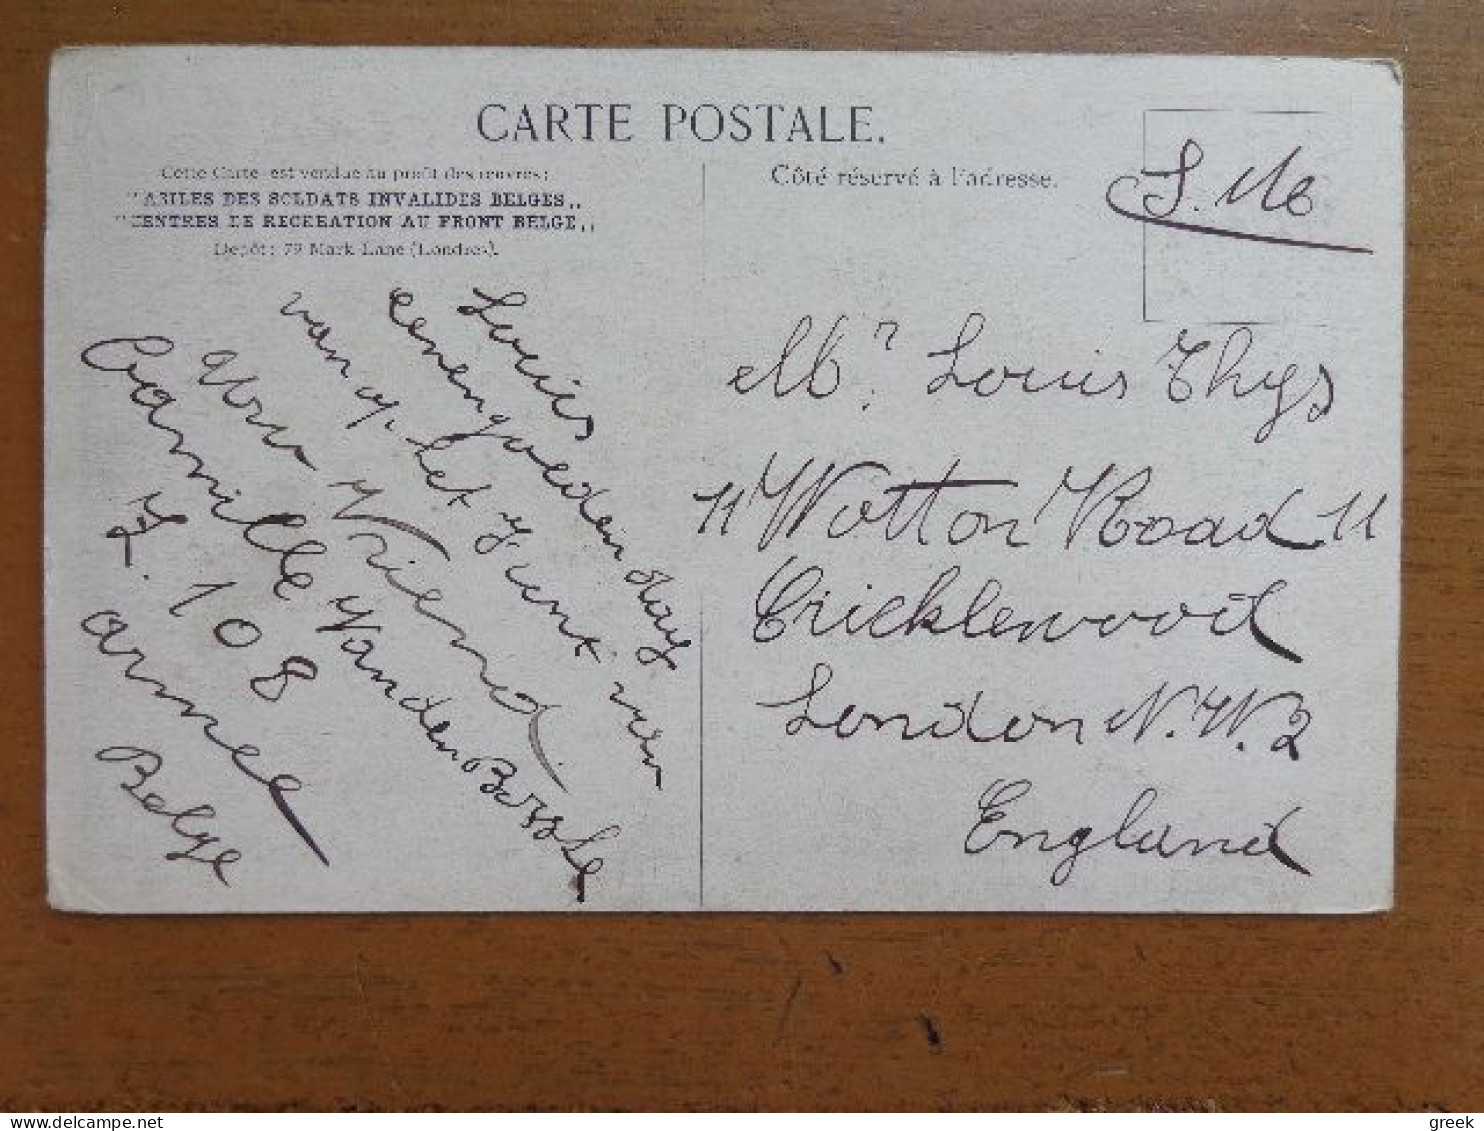 CARTE POSTALE.
Cette Carte est vendue au profit des œuvres:
"ASILES DES SOLDATS INVALIDES BELGES,,
"CENTRES DE RECREATION AU FRONT BELGE,,
Depôt: 79 Mark Lane (Londres).
Côté réservé à l'adresse.
S. M.
Louis
eenen goeden dag
van op het punt van
Uwe Vriend
Camille Vanden Bossche
Z. 108
armee
Belge
Mr. Louis Thys
11 Wotton Road 11
Cricklewood
London N.W. 2
England
greek